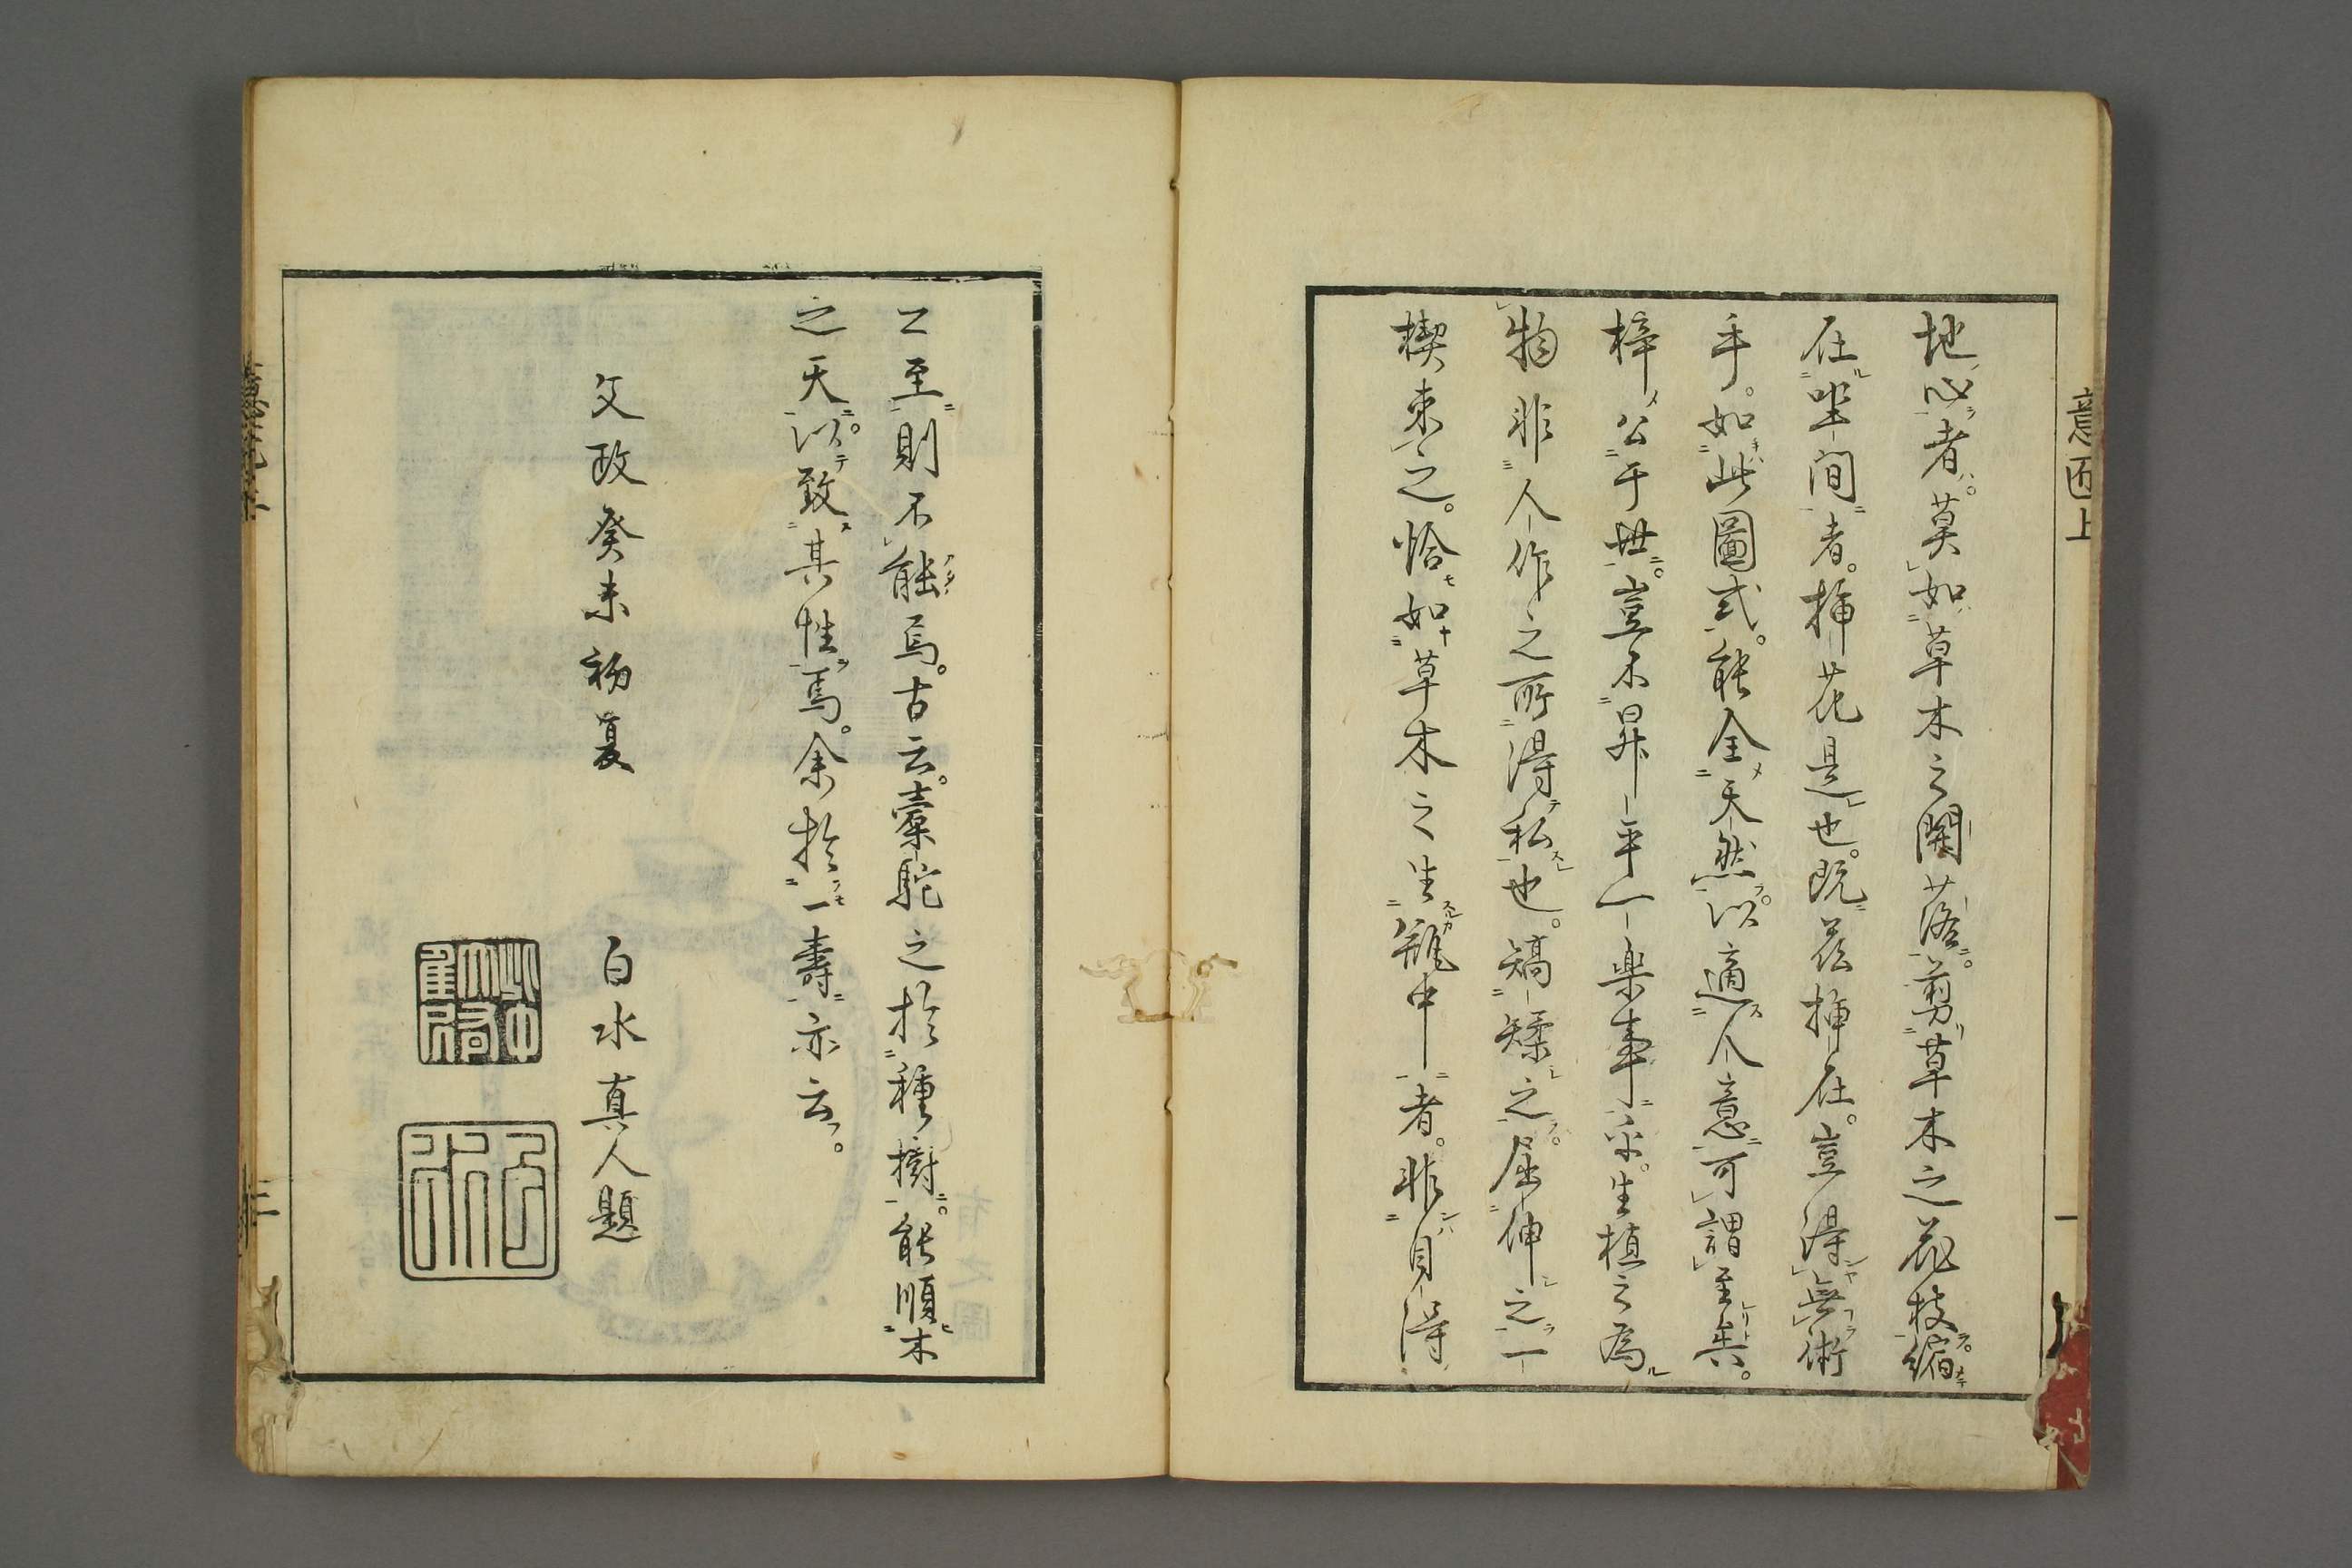 意匠上
一
地心者。莫如草木之開落。剪草木之花枝。縮
在坐間者。挿花是也。既茲挿在。豈得無術
乎。如此圖式。能全天然。以適人意。可謂至矣。
梓公于世。豈不昇平一樂事乎。生植之為
物。非人作之所得私也。矯矯之。屈伸之。一
楔束之。恰如草木之生瓶中者。非自得
之至則不能焉。古云。橐駝之於種樹。能順木
之天。以致其性焉。余於一壽亦云。
文政癸未初夏
白水真人題